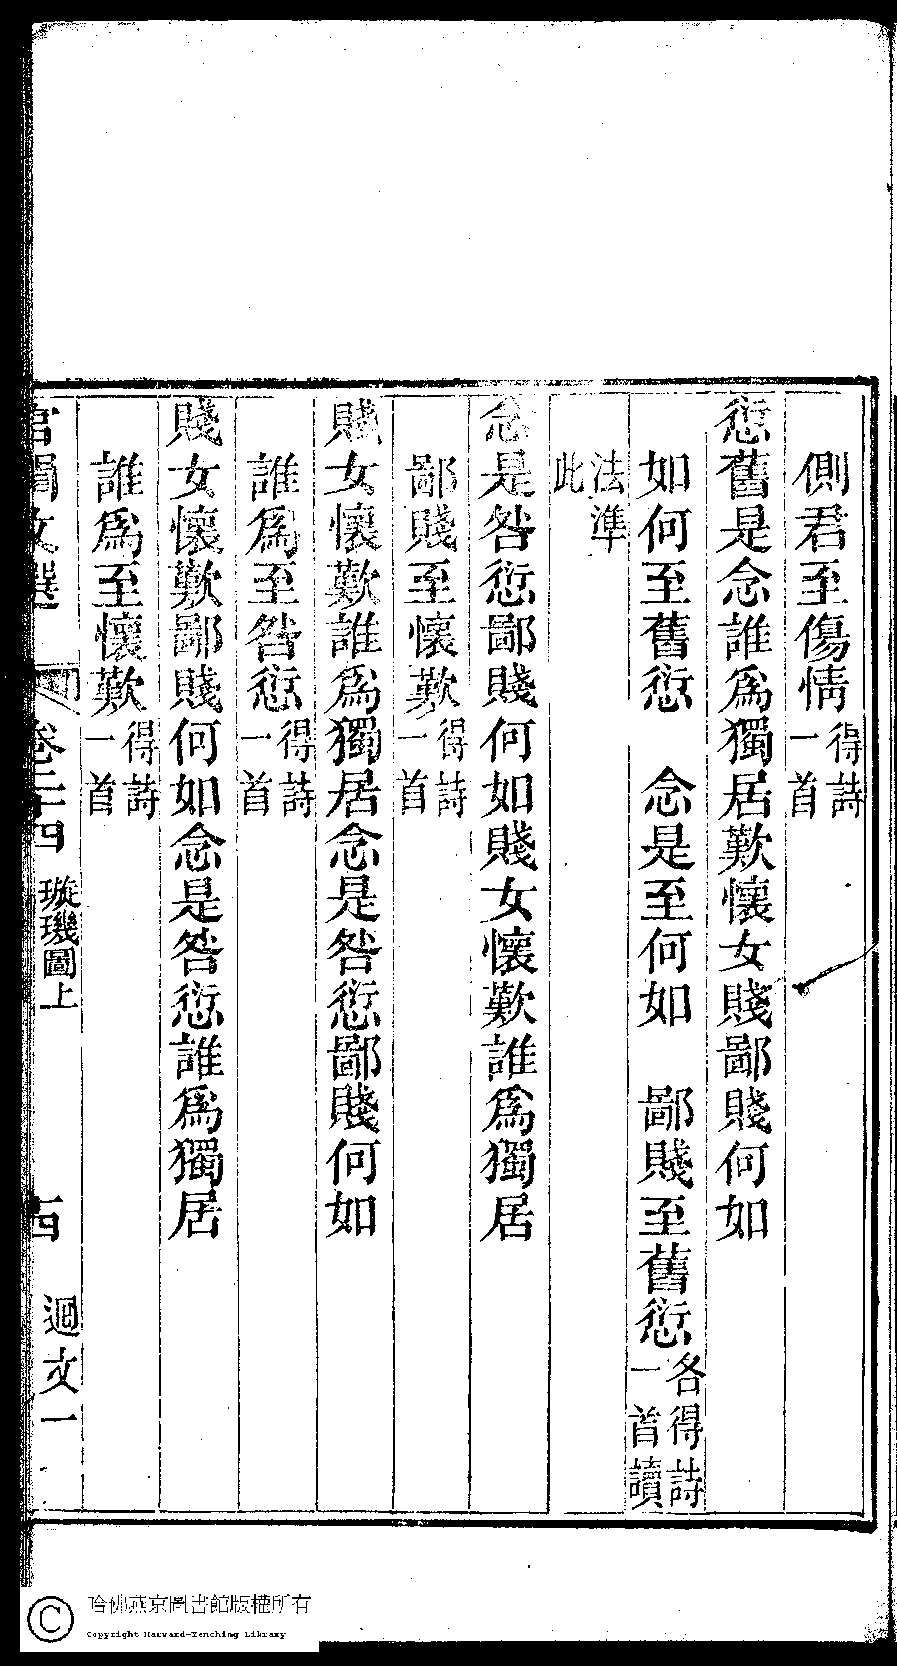 側君至傷情得詩一首
愆舊是念誰爲獨居歎懷女賤鄙賤何如
如何至舊愆　念是至何如　鄙賤至舊愆各得詩一首讀
法準此
念是咎愆鄙賤何如賤女懷歎誰爲獨居
鄙賤至懷歎得詩一首
賤女懷歎誰爲獨居念是咎愆鄙賤何如
誰爲至咎愆得詩一首
賤女懷歎鄙賤何如念是咎愆誰爲獨居
誰爲至懷歎得詩一首
宮閨文選　卷二十四　璇璣圖上　古　迴文一
哈佛燕京圖書館版權所有
Copyright Harvard-Yenching Library